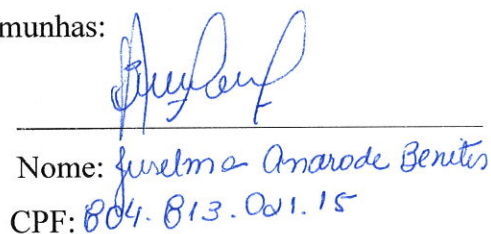 munhas:
Nome: Juselma Amarode Benites
CPF: 804.813.021.15